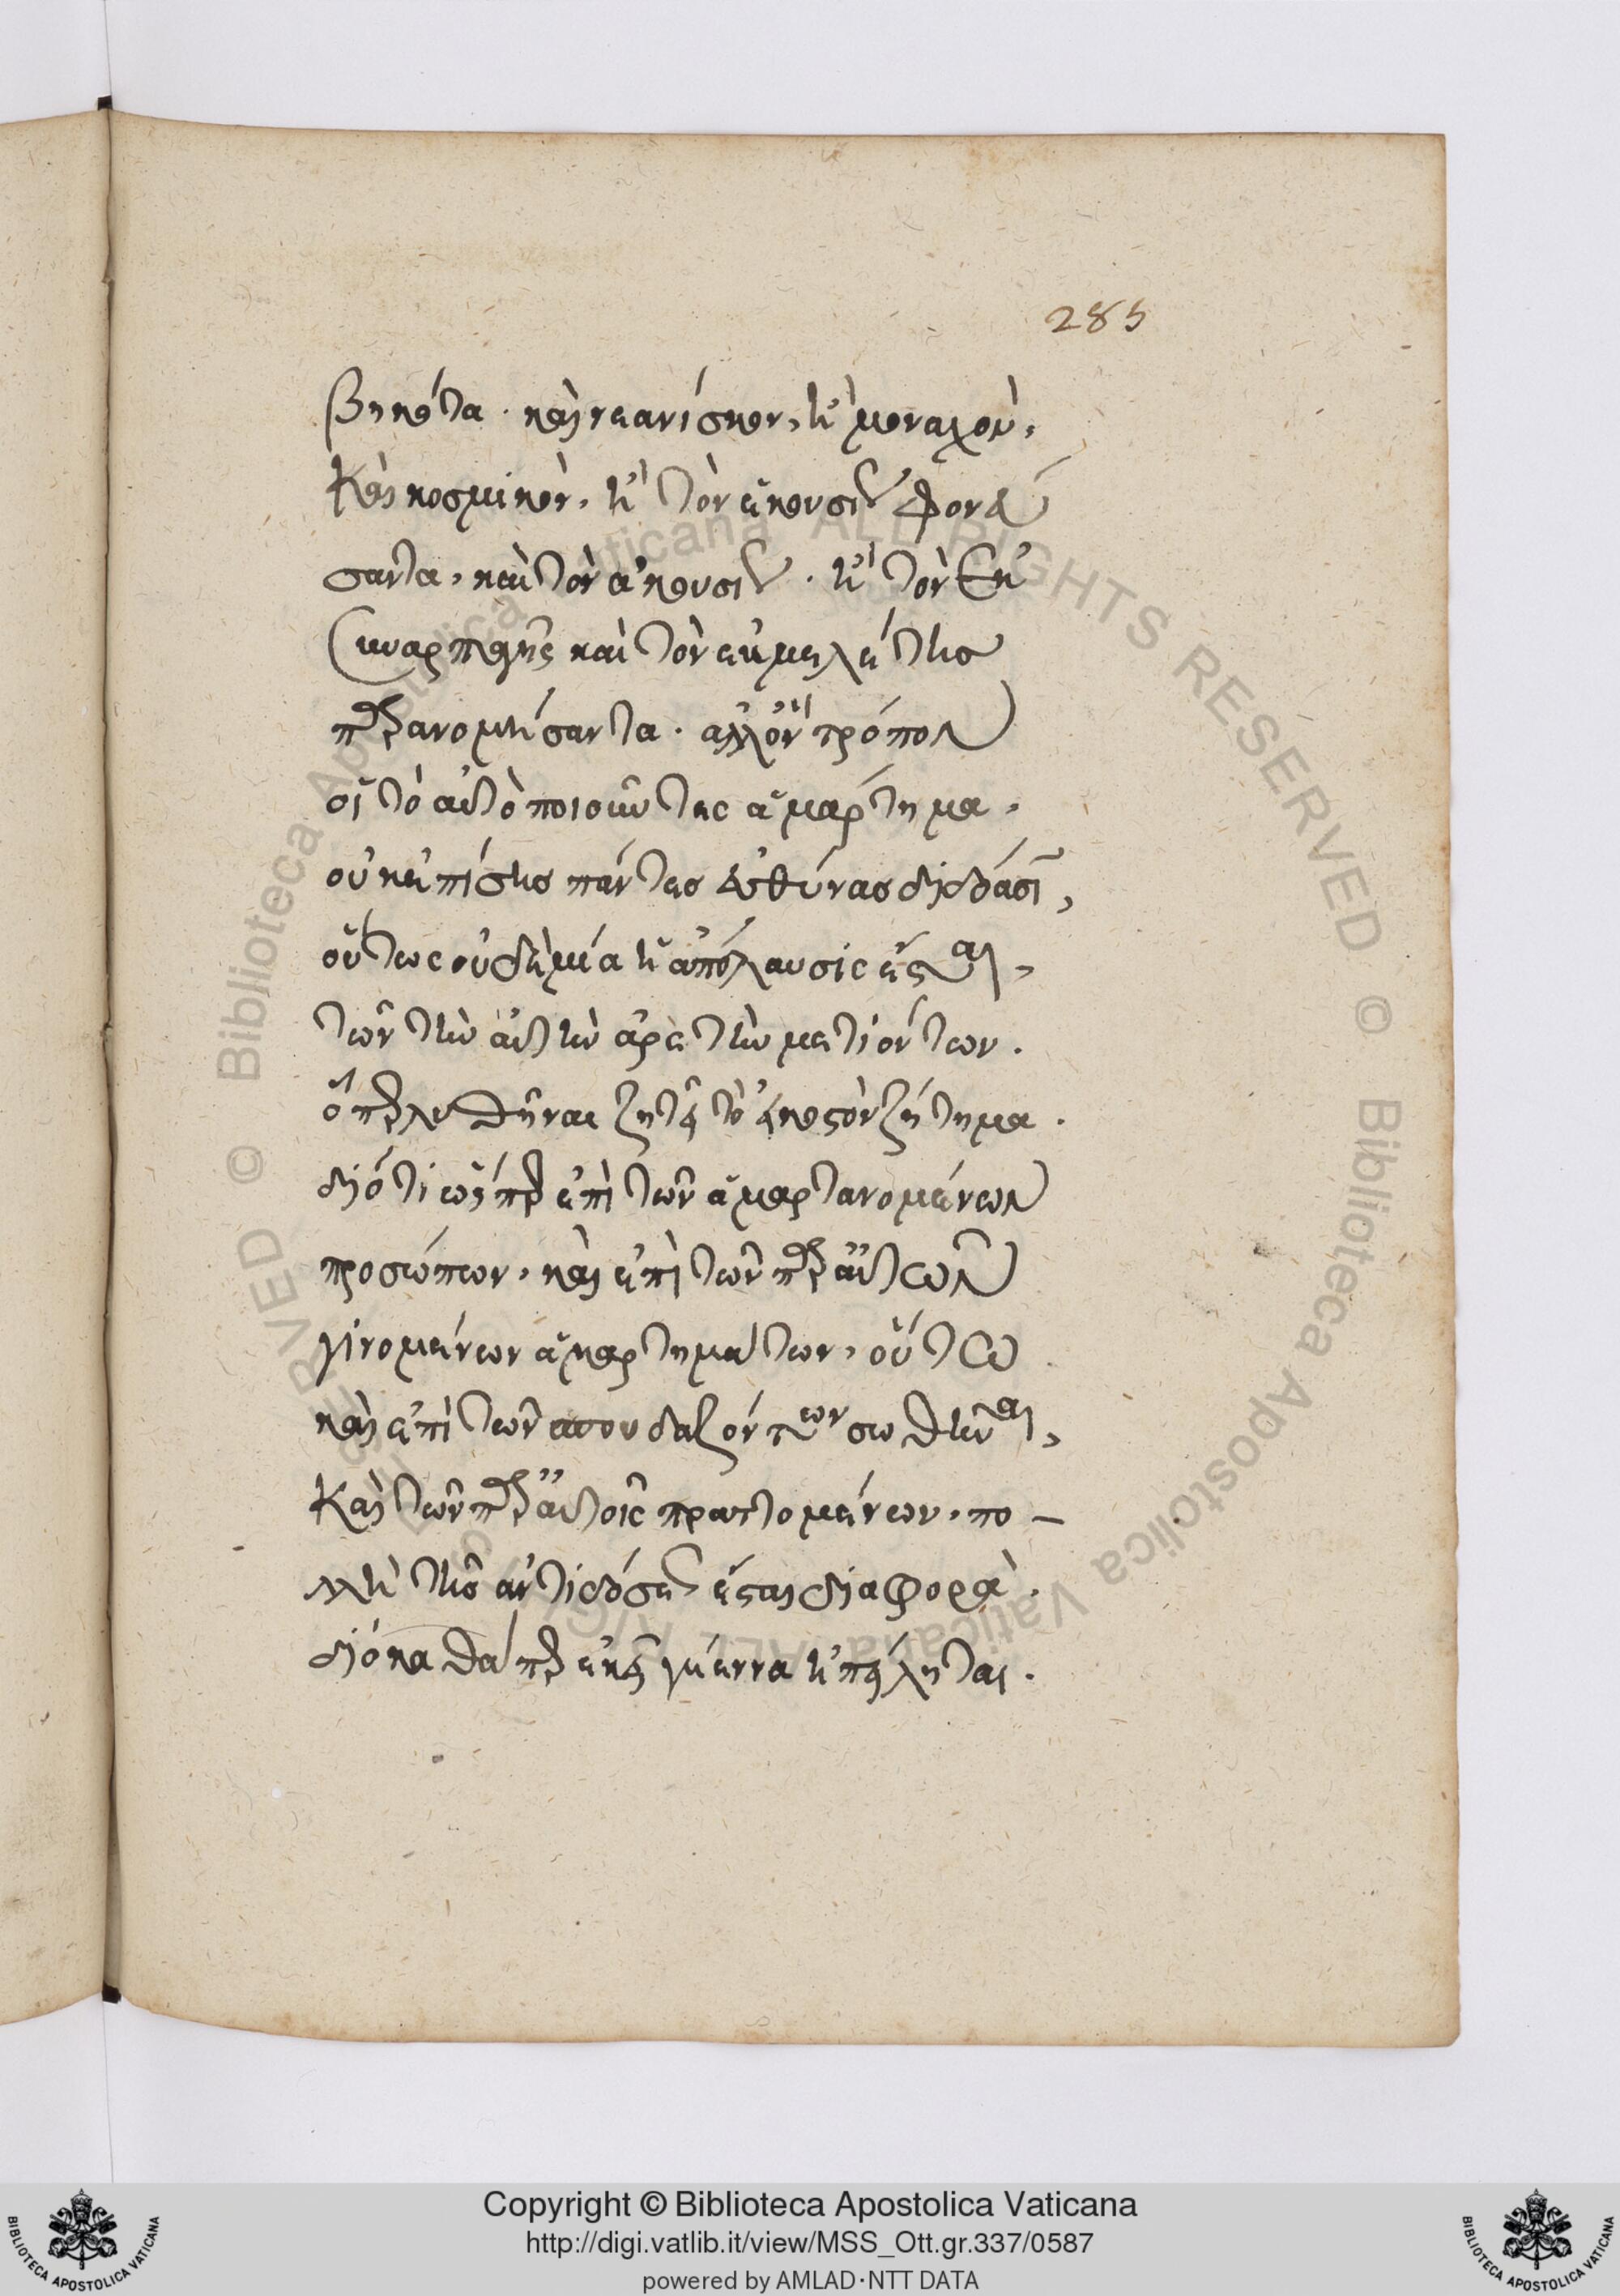 285
βηκότα· καὶ νεανίσκον, ἢ μοναχὸν,
καὶ κοσμικὸν, ἢ τὸν ἑκουσίως φονεύ
σαντα, καὶ τὸν ἀκουσίως· ἢ τὸν ἐκ
συναρπαγῆς καὶ τὸν ἐκ μελέτης
παρανομήσαντα· ἀλλ' ὃν τρόπον
οἱ τὸ αὐτὸ ποιοῦντες ἁμάρτημα,
οὐκ ἐπίσης πάντες εὐθύνας διδόασι,
οὕτως οὐδὲ μία ἡ ἀπόλαυσις ἔσται,
τῶν τὴν αὐτὴν ἀρετὴν μετιόντων.
ὅπερ λυθῆναι ζητεῖ τὸ εἰκοστὸν ζήτημα.
διότι ὥσπερ ἐπὶ τῶν ἁμαρτανομένων
προσώπων, καὶ ἐπὶ τῶν παρ' αὐτῶν
γινομένων ἁμαρτημάτων, οὕτω
καὶ ἐπὶ τῶν σπουδαζόντων σωθῆναι,
καὶ τῶν παρ' αὐτοῖς πραττομένων, πο-
λλὴ τῆς ἀντιδόσεως ἔσται διαφορά.
διὸ καθάπερ ἐκεῖ γέεννα ἠπείληται.
Copyright © Biblioteca Apostolica Vaticana
http://digi.vatlib.it/view/MSS_Ott.gr.337/0587
powered by AMLAD·NTT DATA
BIBLIOTECA APOSTOLICA VATICANA
BIBLIOTECA APOSTOLICA VATICANA
© Biblioteca Apostolica Vaticana ALL RIGHTS RESERVED
© Biblioteca Apostolica Vaticana ALL RIGHTS RESERVED